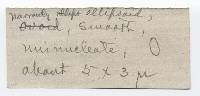 Narrowly ellipsoid,
Ovoid, smooth,
uninucleate,
about 5 x 3 µ